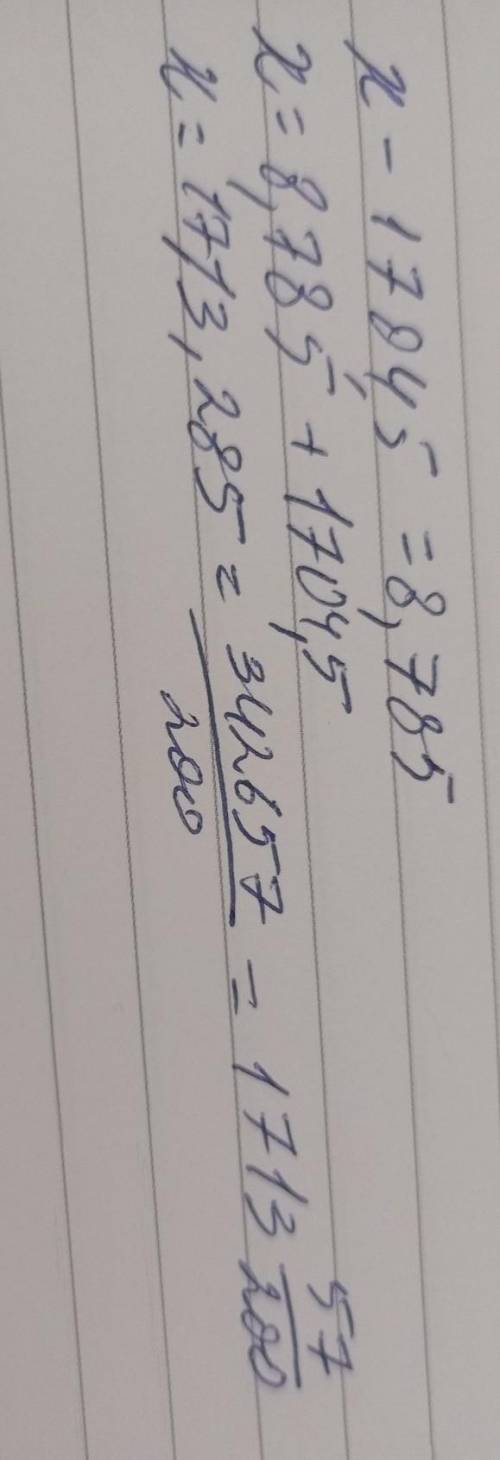 x - 1704,5 = 8,785
x = 8,785 + 1704,5
x = 1713,285 = 342657/200 = 1713 57/200